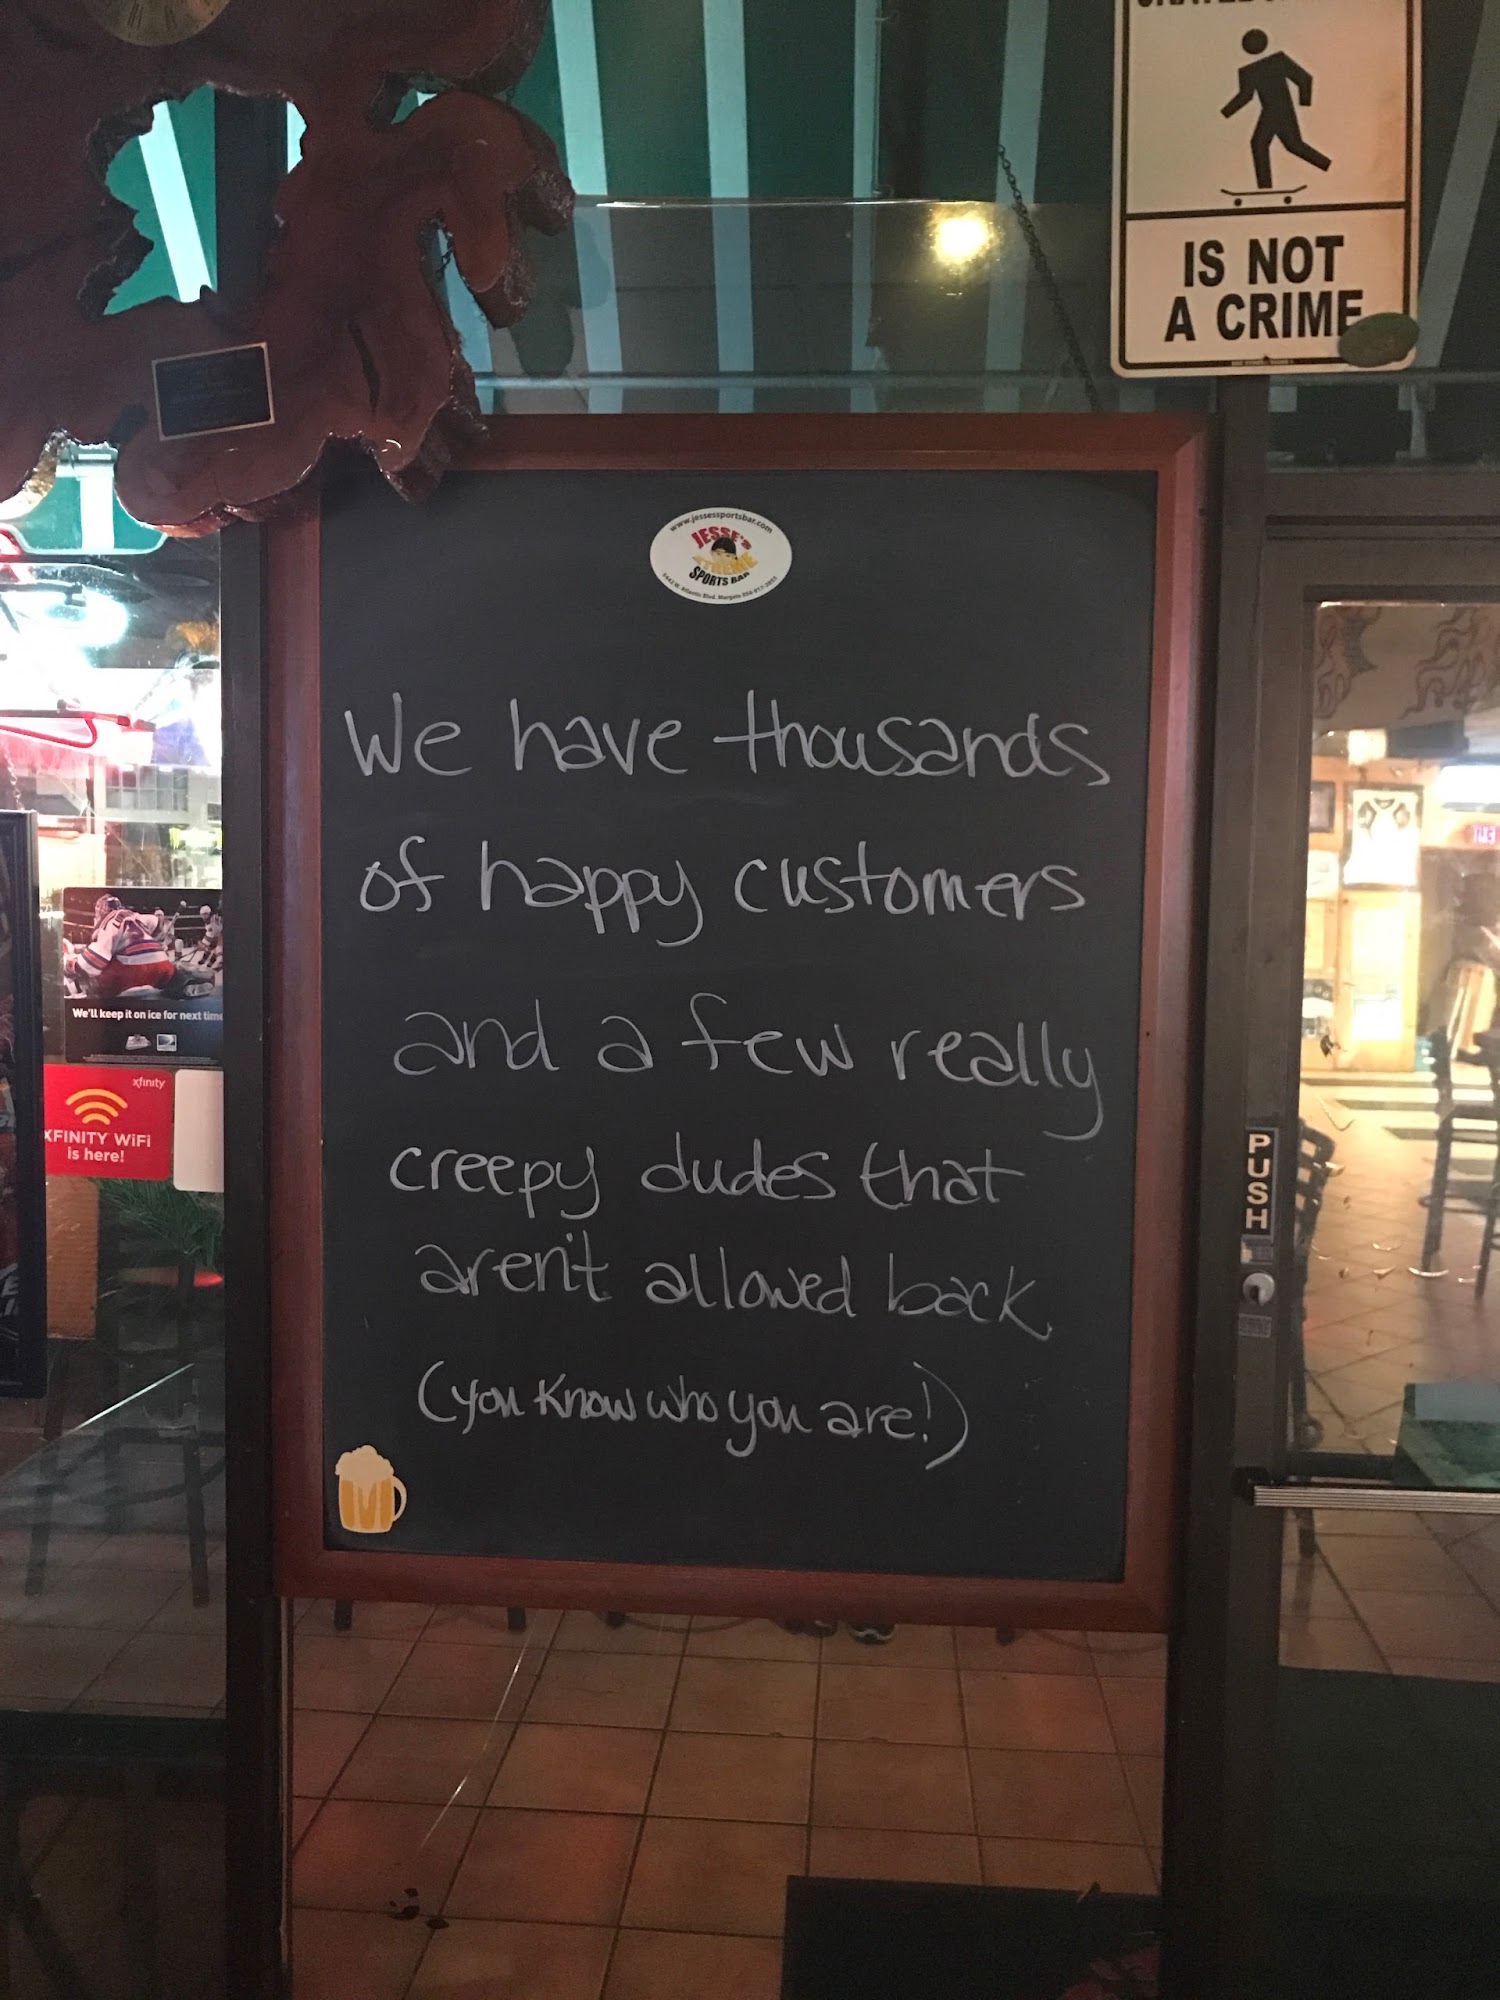 IS NOT
A CRIME
www.jessessportsbar.com
JESSE'S
XTREME
SPORTS BAR
We have thousands
of happy customers
and a few really
creepy dudes that
aren't allowed back
(you know who you are!)
We'll keep it on ice for next time
xfinity
XFINITY WiFi
is here!
PUSH